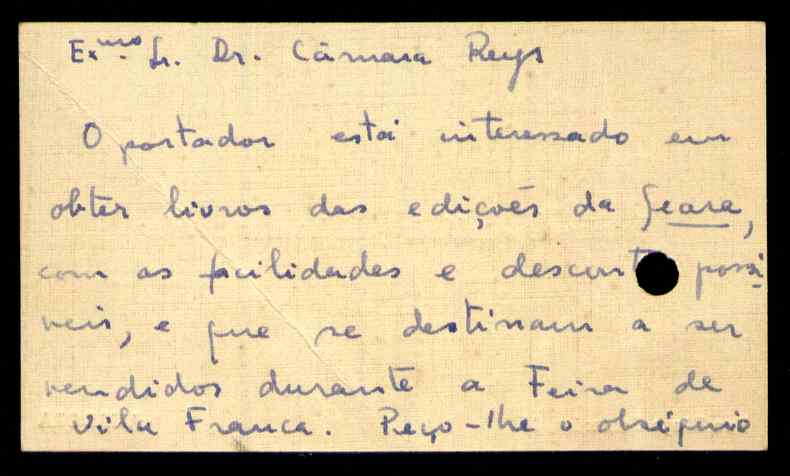 Exmo. Sr. Dr. Câmara Reys
O portador está interessado em
obter livros das edições da Seara,
com as facilidades e descont possí-
veis, e que se destinam a ser
vendidos durante a Feira de
Vila Franca. Peço-lhe o obséquio